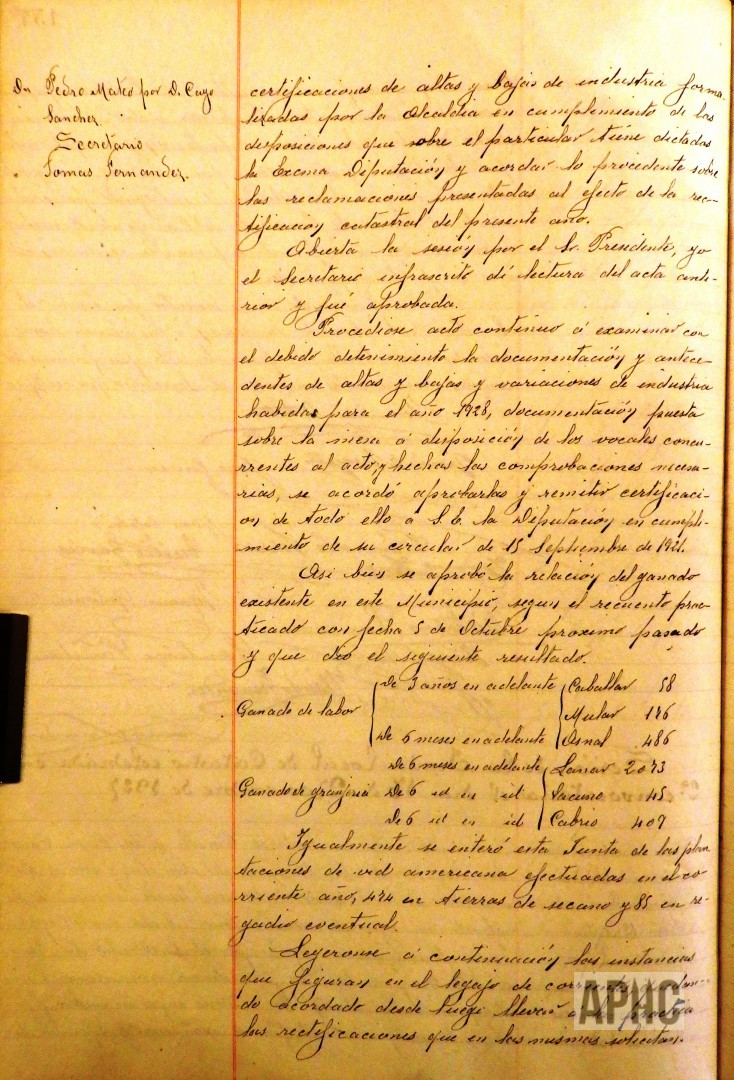 Dn Pedro Mateo por D. Cayo
Sanchez
Secretario
" Tomas Fernandez.
certificaciones de altas y bajas de industria forma-
lizadas por la Alcaldia en cumplimiento de las
disposiciones que sobre el particular tiene dictadas
la Excma Diputación y acordar lo procedente sobre
las reclamaciones presentadas al efecto de la rec-
tificación catastral del presente año.
Abierta la sesión por el Sr. Presidente, yo
el Secretario infrascrito dí lectura del acta ante-
rior y fué aprobada.
Procediose acto continuo á examinar con
el debido detenimiento la documentación y antece-
dentes de altas y bajas y variaciones de industria
habidas para el año 1928, documentación puesta
sobre la mesa á disposición de los vocales concu-
rrentes al acto, y hechas las comprobaciones necesa-
rias, se acordó aprobarlas y remitir certificaci-
on de todo ello a S. E. la Diputación en cumpli-
miento de su circular de 15 Septiembre de 1921.
Asi bien se aprobó la relación del ganado
existente en este Municipio, segun el recuento prac-
ticado con fecha 5 de Octubre proximo pasado
y que dio el siguiente resultado.
Ganado de labor De 3 años en adelante Caballar 58
Mular 126
De 6 meses en adelante Asnal 486
De 6 meses en adelante Lanar 2073
Ganado de granjeria De 6 id en id Vacuno 45
De 6 id en id Cabrio 407
Igualmente se enteró esta Junta de las plan
taciones de vid americana efectuadas en el co-
rriente año, 474 en tierras de secano y 85 en re-
gadio eventual.
Leyeronse á continuación las instancias
que figuran en el legajo de
do acordado desde luego llevar á la practica
las rectificaciones que en las mismas solicitan.
APHC